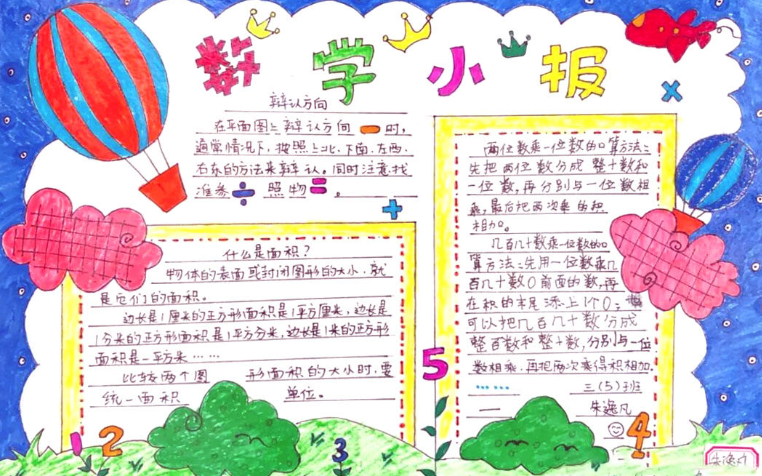 数学小报
辩认方向
在平面图上辩认方向 时,
通常情况下,按照上北,下南,左西,
右东的方法来辩认。同时注意找
准参 照物 。
什么是面积?
物体的表面或封闭图形的大小,就
是它们的面积。
边长是1厘米的正方形面积是1平方厘米,边长是
1分米的正方形面积是1平方分米,边长是1米的正方形
面积是一平方米……
比较两个图 形面积的大小时,要
统一面积 单位。
两位数乘一位数的口算方法:
先把两位数分成整十数和
一位数,再分别与一位数相
乘,最后把两次乘的积
相加。
几百几十数乘一位数的口
算方法:先用一位数乘几
百几十数0前面的数,再
在积的末尾添上1个0;
可以把几百几十数分成
整百数和整十数,分别与一位
数相乘,再把两次乘得积相加
三(5)班
朱逸凡
5
1 2 3 4